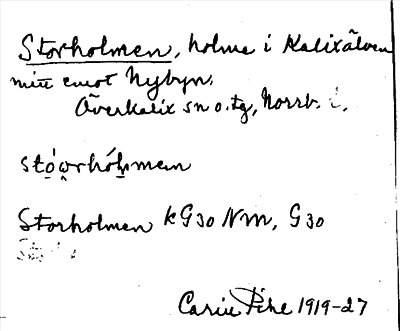 Storholmen, holme i Kalixälven
mitt emot Nybyn.
Överkalix sn o. tg, Norrb. l.
Storholmen k G30 NM, G30
Carin Pihl 1919-27